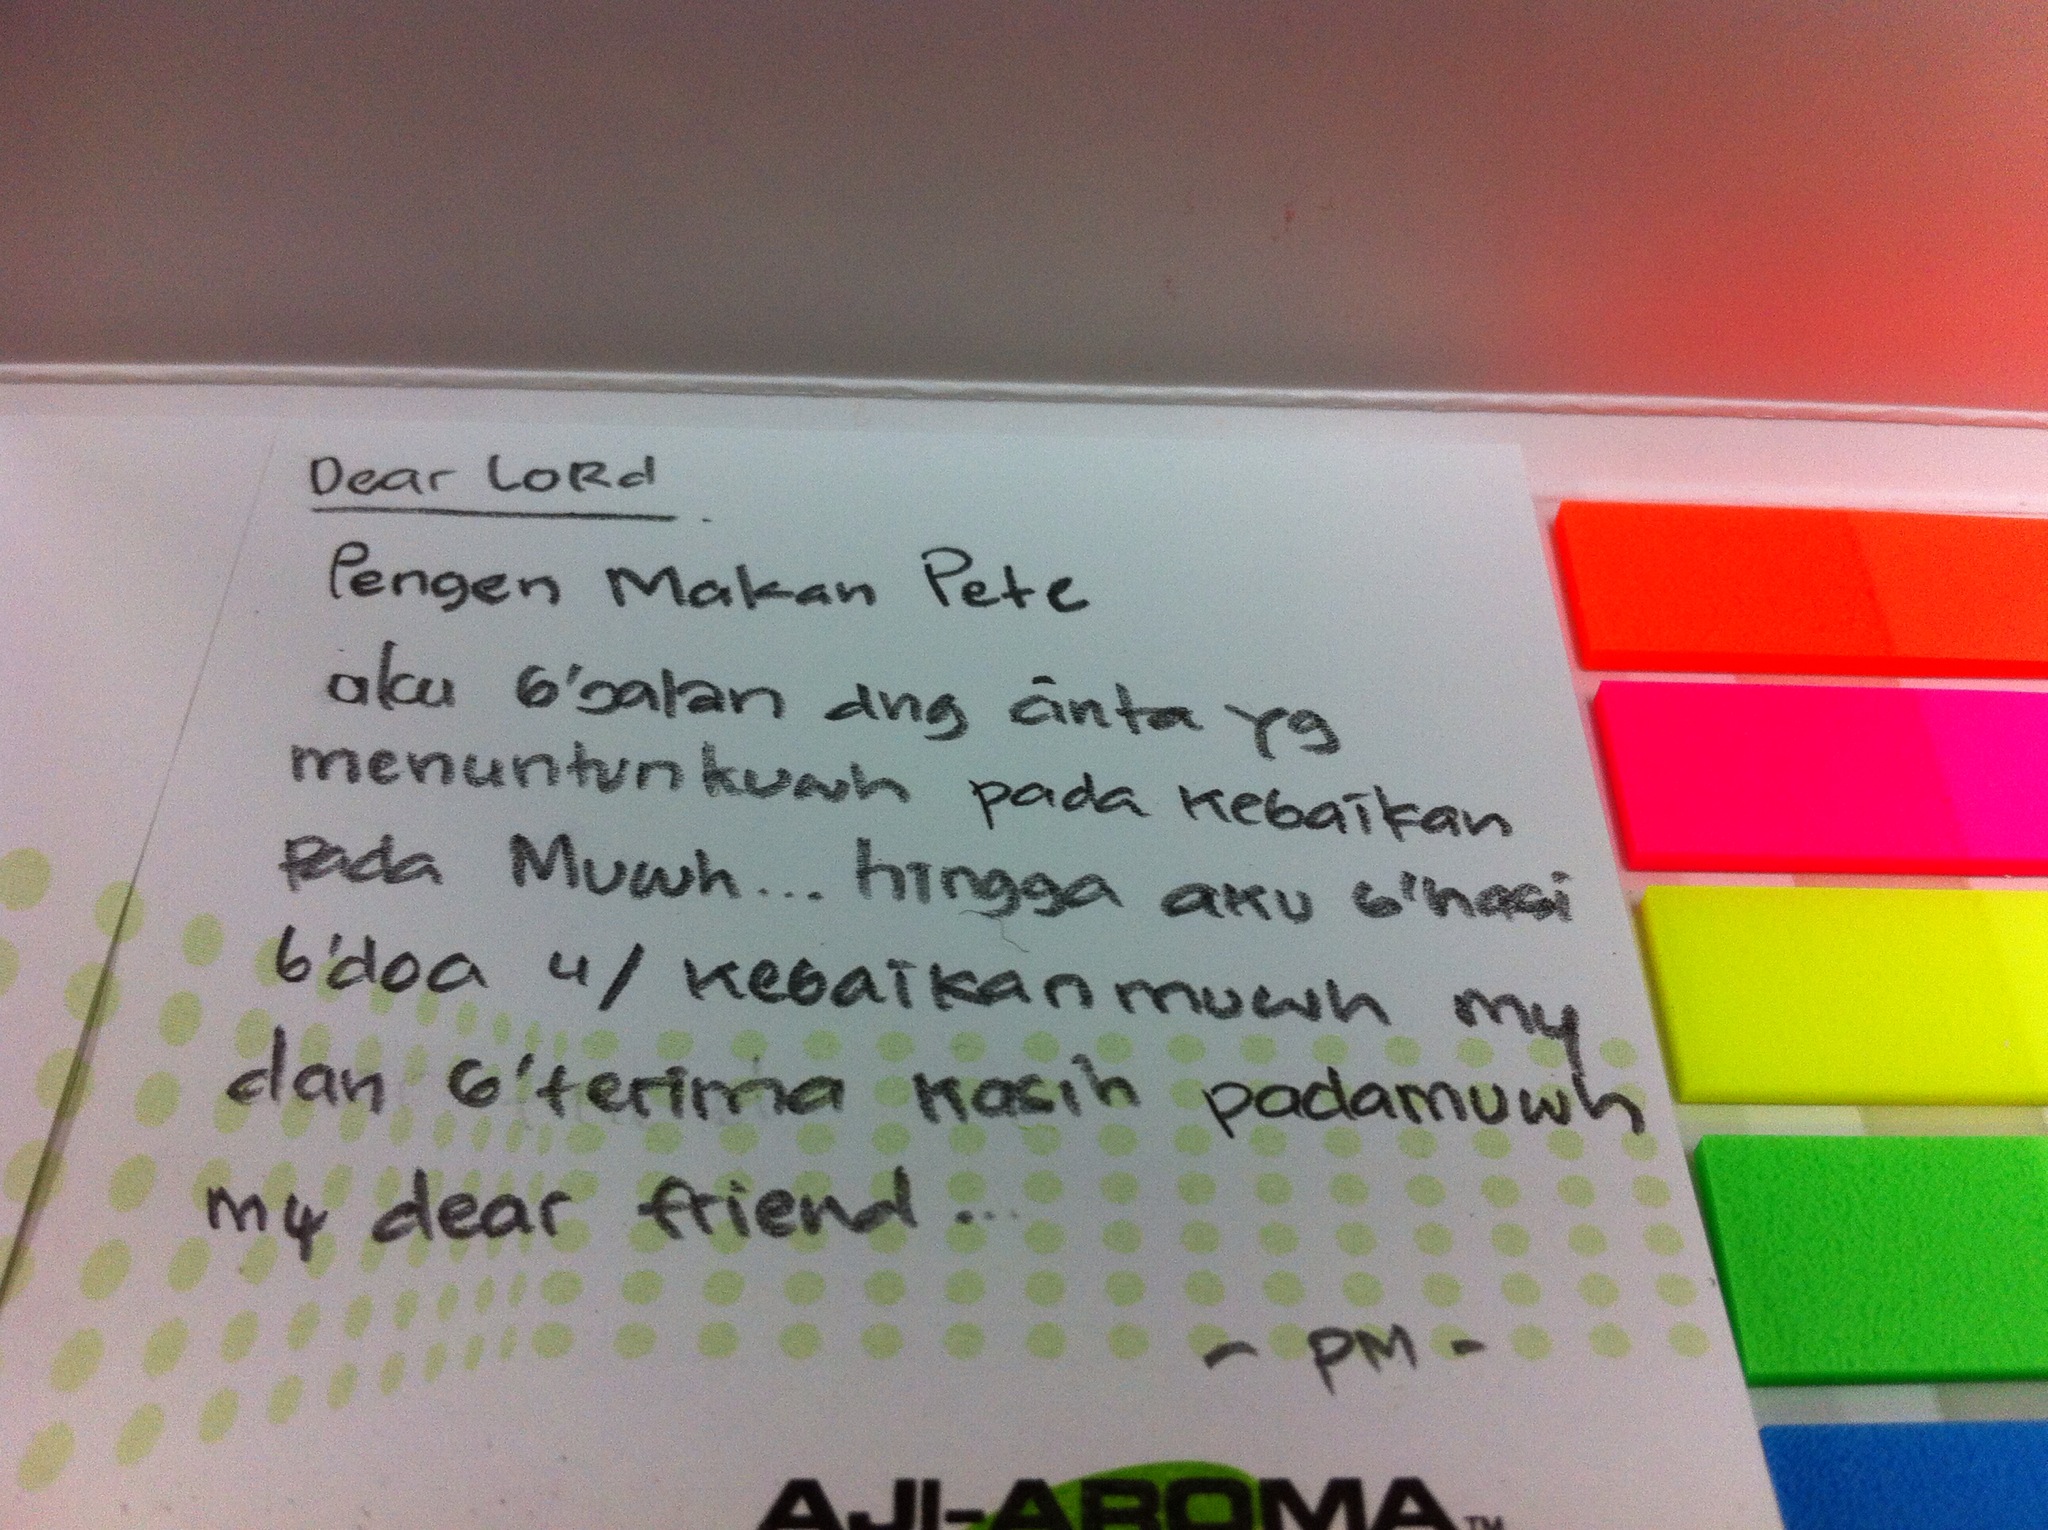 Dear LoRd
Pengen Makan Pete
aku b'jalan dng cinta yg
menuntunkuwh pada kebaikan
pada Muwh... hingga aku b'hasi
b'doa u/ kebaikanmuwh my
dan b'terima kasih padamuwh
my dear friend...
- PM -
AJI-AROMA™